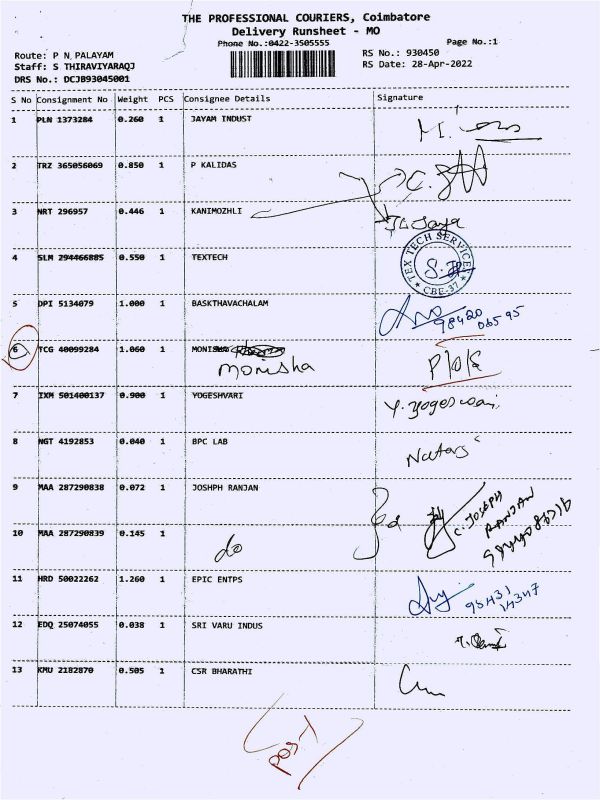 THE PROFESSIONAL COURIERS, Coimbatore
Delivery Runsheet - MO
Phone No.:0422-3505555
Page No.:1
Route: P N PALAYAM
RS No.: 930450
Staff: S THIRAVIYARAQJ
RS Date: 28-Apr-2022
DRS No.: DCJB93045001
S No Consignment No Weight PCS Consignee Details Signature
1 PLN 1373284 0.260 1 JAYAM INDUST
2 TRZ 365056069 0.850 1 P KALIDAS
3 NRT 296957 0.446 1 KANIMOZHLI
4 SLM 294466885 0.550 1 TEXTECH
TEX TECH SERVICE
CBE-37
5 DPI 5134079 1.000 1 BASKTHAVACHALAM
98420
6 TCG 40099284 1.060 1
Monisha
7 IXM 501400137 0.900 1 YOGESHVARI Y. Yogeswari
8 NGT 4192853 0.040 1 BPC LAB
9 MAA 287290838 0.072 1 JOSHPH RANJAN C. JOSEPH
RANJAN
10 MAA 287290839 0.145 1 do
11 HRD 50022262 1.260 1 EPIC ENTPS
12 EDQ 25074055 0.038 1 SRI VARU INDUS
13 KMU 2182870 0.505 1 CSR BHARATHI